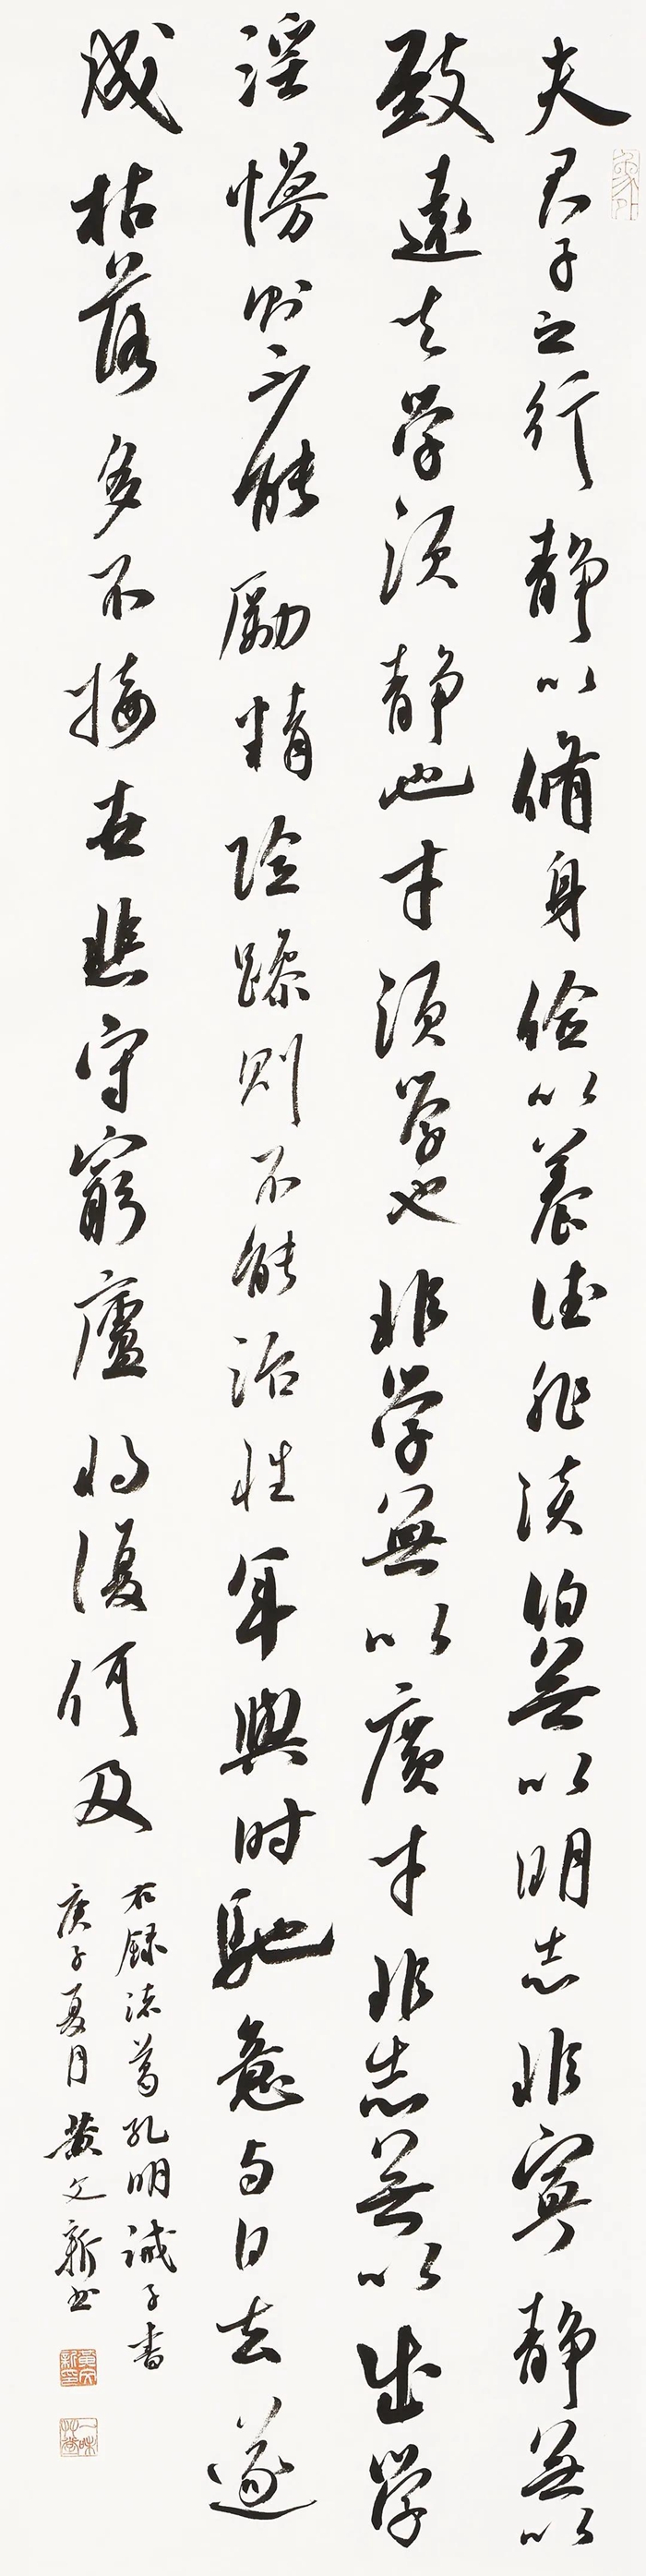 夫君子之行靜以脩身儉以養德非淡泊無以明志非寧靜無以
致遠夫学須靜也才須学也非学無以廣才非志無以成学
淫慢則不能勵精險躁則不能治性年與時馳意与日去遂
成枯落多不接世悲守窮廬将復何及
右録诸葛孔明誡子書
庚子夏月黄文新书
黄文新印